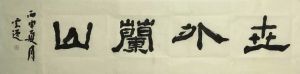 世外蘭山
丙申夏月